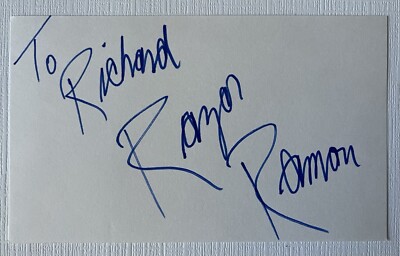 To Richard
Razor
Ramon